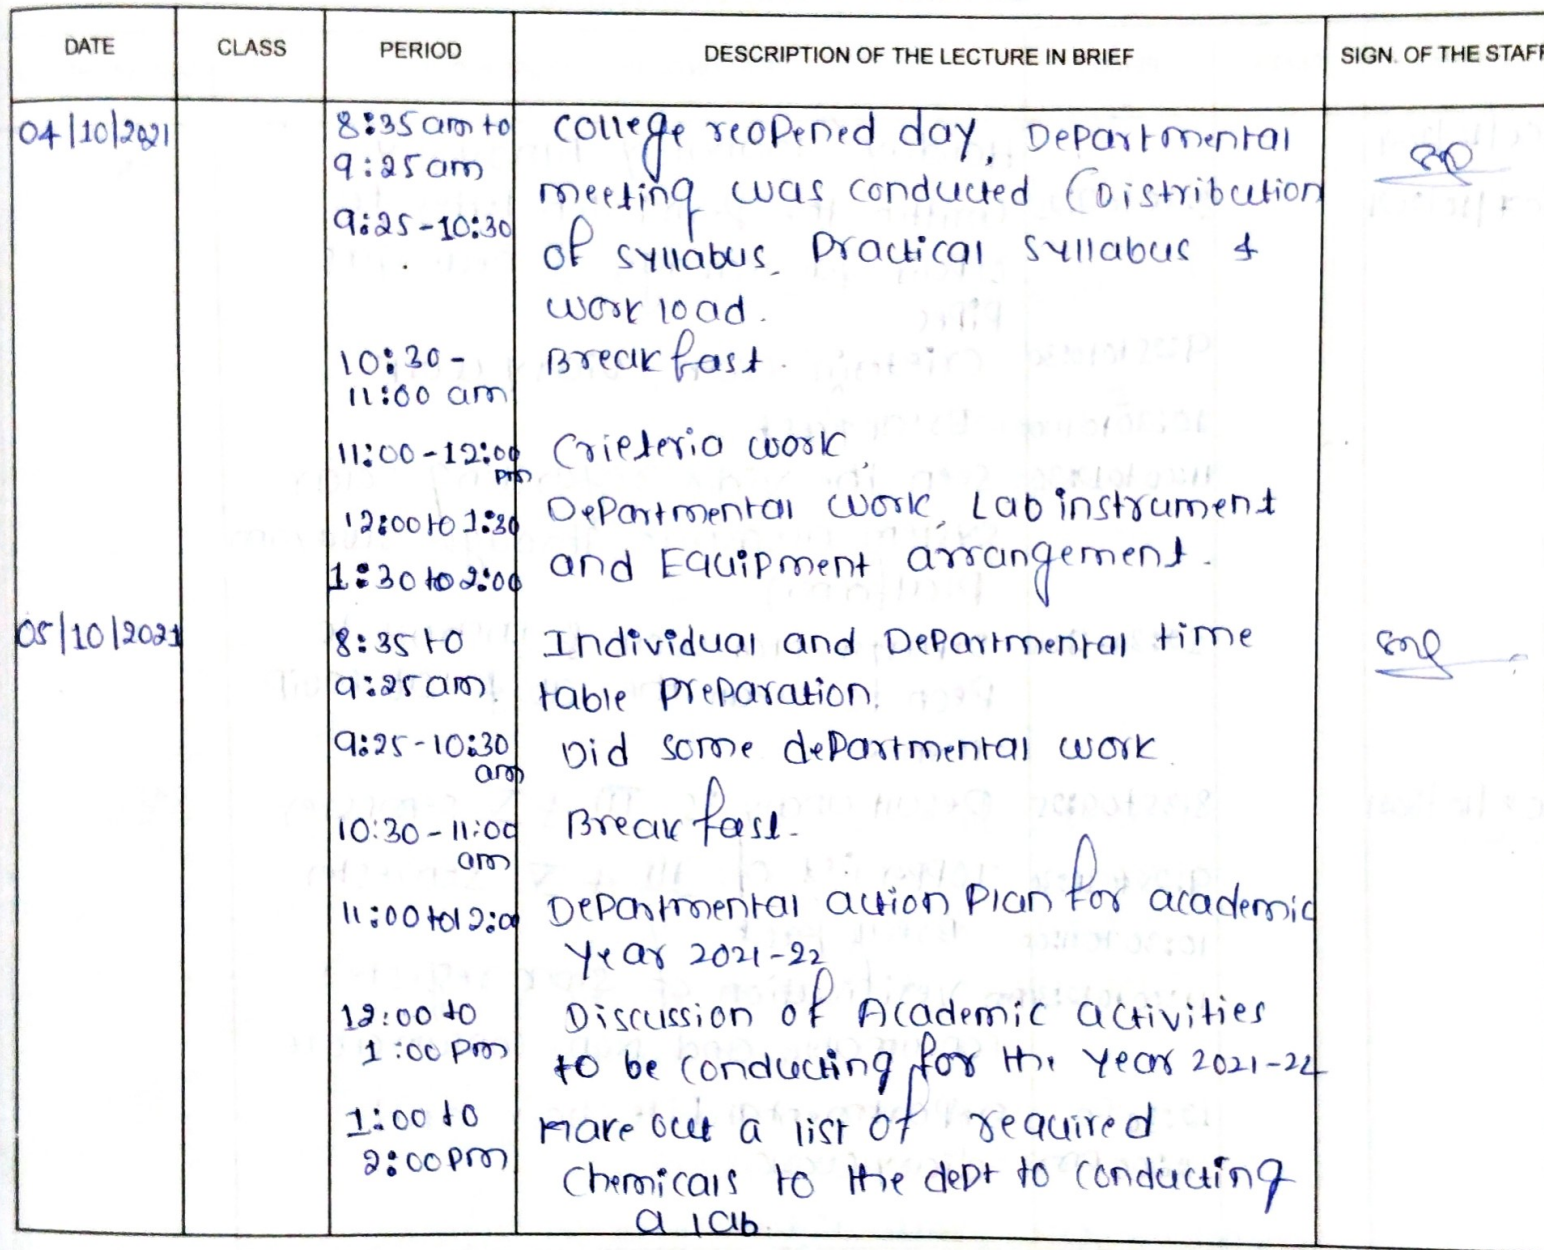 DATE CLASS PERIOD DESCRIPTION OF THE LECTURE IN BRIEF SIGN. OF THE STAFF
04/10/2021 8:35 am to College reopened day, Departmental
9:25 am meeting was conducted (Distribution
9:25 - 10:30 of syllabus, Practical syllabus &
work load.
10:30 - Break fast.
11:00 am
11:00 - 12:00 pm Crieteria work,
12:00 to 1:30 Departmental work, Lab instrument
1:30 to 2:00 and Equipment arrangement.
05/10/2021 8:35 to Individual and Departmental time
9:25 am. table preparation.
9:25 - 10:30 am Did some departmental work
10:30 - 11:00 am Break fast.
11:00 to 12:00 Departmental action plan for academic
year 2021-22
12:00 to Discussion of Academic activities
1:00 pm to be conducting for the year 2021-22
1:00 to Make out a list of required
2:00 pm Chemicals to the dept to conducting
a lab.